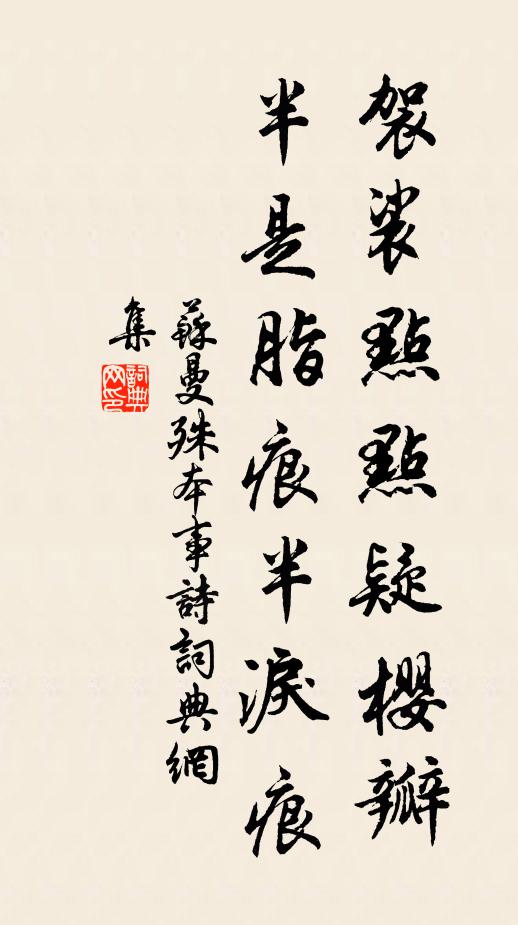 袈裟點點疑櫻瓣
半是脂痕半淚痕
蘇曼殊本事詩詞典網
集
詞典網印